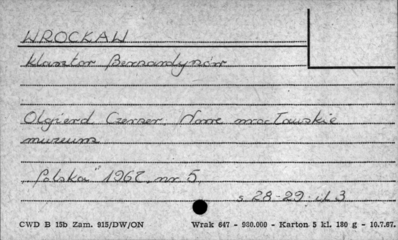 WROCŁAW
klasztor Bernardynów
Olgierd Czerner. Nowe wrocławskie
muzeum
"Polska" 1967. nr 5.
s. 28-29. il. 3
CWD B 15b Zam. 915/DW/ON Wrak 647 - 500.000 - Karton 5 kl. 180 g - 10.7.67.